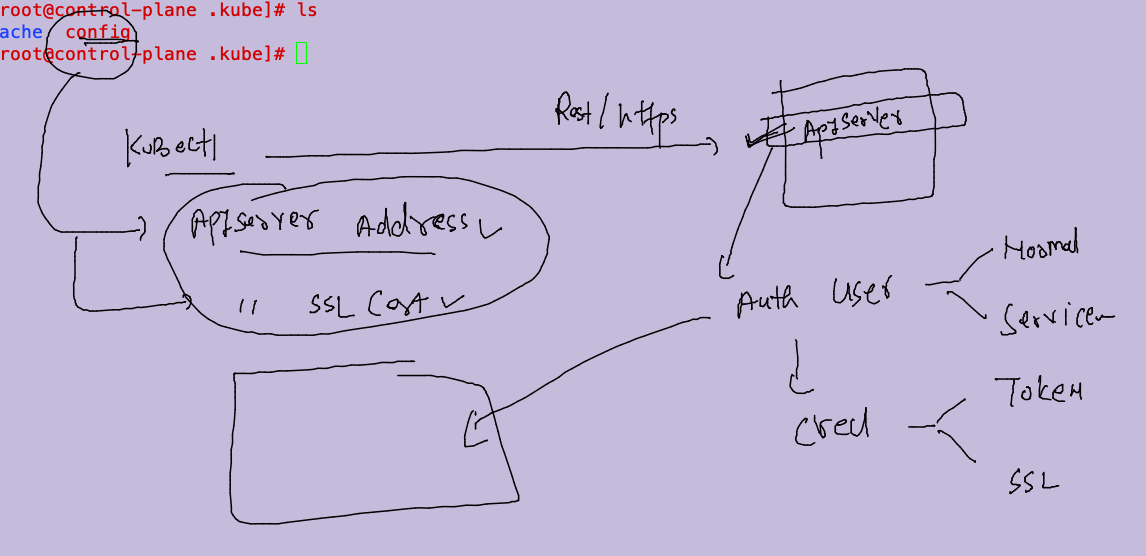 root@control-plane .kube]# ls
ache config
root@control-plane .kube]# 
Rest/https
ApIServer
KuBectl
ApIserver Address
" SSL Cert
Auth User
Normal
Service
Cred
Token
SSL